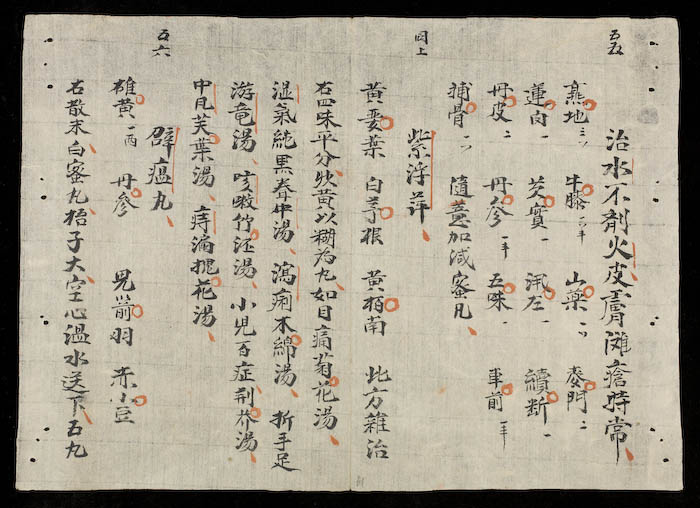 五五
治水不剤火皮膚灘瘡時常
熟地三ツ 牛膝六半 山藥二ツ 麥門二
蓮肉一 芡實一 泻左一 續断一
丹皮二 丹參一半 五味一 車前一半
補骨一ツ 隨薏加減蜜凡
同上
紫浮萍
黄姜葉 白茅根 黄栢南 此方雜治
右四味平分炊黄以糊為九如目痛菊花湯
湿氣純黒脊牛湯 瀉痢木綿湯 折手足
游竜湯 咳嗽竹湯 小児百症荆芥湯
中凡芙葉湯 痔漏槐花湯
五六
辟瘟丸
雄黄一両 丹參 鬼箭羽 赤小豆
右散末白蜜丸梧子大空心温水送下五九